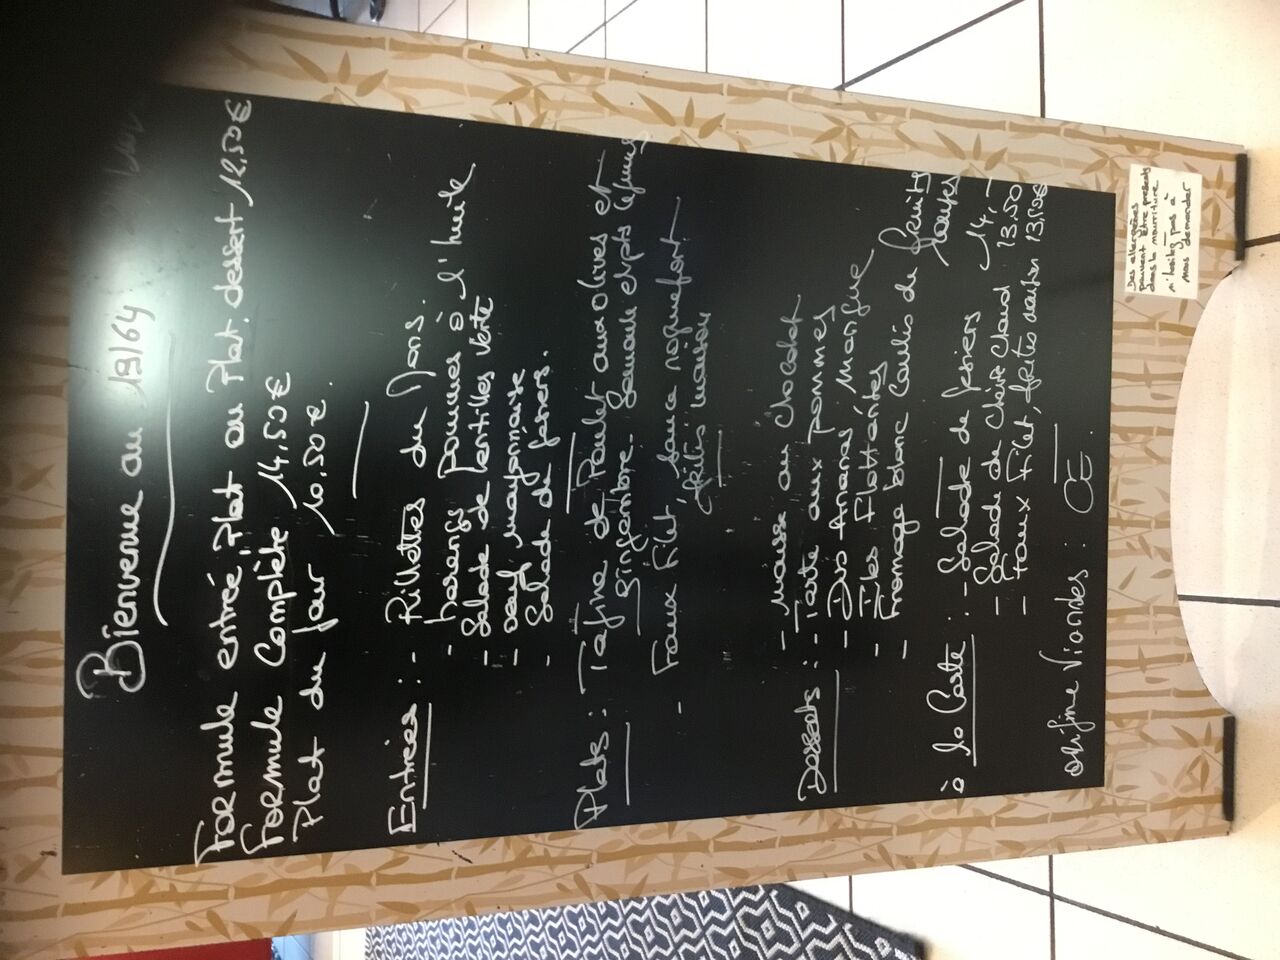 Bienvenue au 19/64
Formule entrée, Plat ou Plat. dessert 12,50€
Formule Complète 14,50€
Plat du jour 10,50€.
Entrées : - Rillettes du Mans.
- harengs pommes à l'huile
- Salade de lentilles verte
- oeuf mayonnaise
- Salade de gesiers.
Plats : - Tajine de Poulet aux olives et
gingembre. Semoule et pts légumes
- Faux Filet, sauce roquefort
frites maison
- mousse au chocolat
Desserts : - Tarte aux pommes
- Duo Ananas Mangue
- Iles Flottantes
- Fromage blanc Coulis de fruits
rouges
à la Carte : - Salade de gesiers 14,-
- Salade de Chèvre Chaud 13.50
- Faux Filet, frites maison 13,50€
origine Viandes : CE.
Des allergènes
peuvent être présents
dans la nourriture
n'hésitez pas à
nous demander